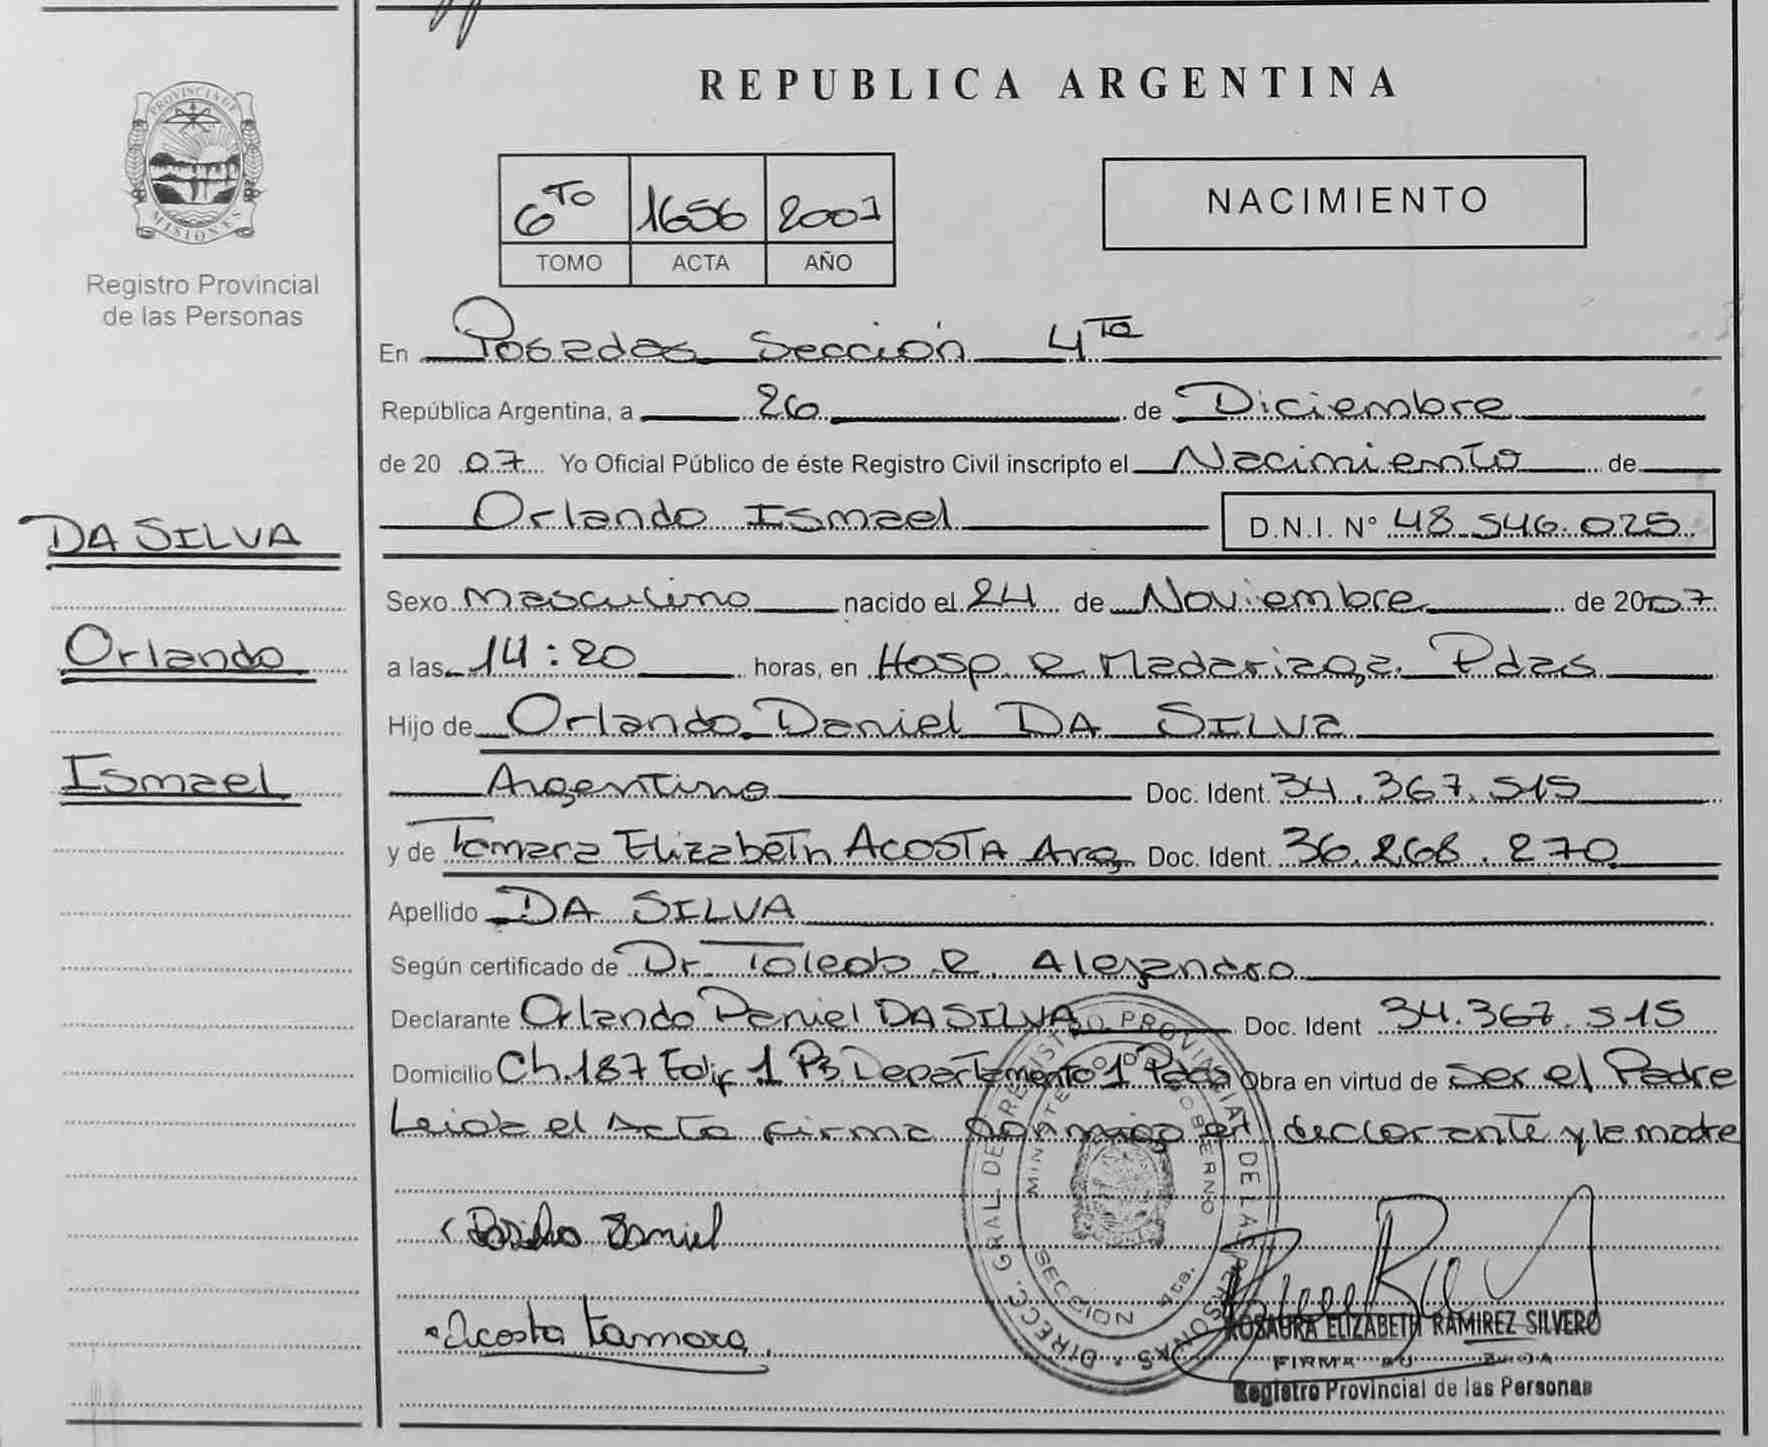 PROVINCIA DE
MISIONES
Registro Provincial
de las Personas
DA SILVA
Orlando
Ismael
REPUBLICA ARGENTINA
6TO 1656 2007
TOMO ACTA AÑO
NACIMIENTO
En Posadas Sección 4ta
República Argentina, a 26 de Diciembre
de 2007 Yo Oficial Público de éste Registro Civil inscripto el Nacimiento de
Orlando Ismael D.N.I. N° 48.546.025
Sexo masculino nacido el 24 de Noviembre de 2007
a las 14:20 horas, en Hosp. R. Madariaga. Pdas
Hijo de Orlando Daniel DA SILVA
Argentino Doc. Ident. 34.367.515
y de Tamara Elizabeth ACOSTA Arg Doc. Ident. 36.268.270
Apellido DA SILVA
Según certificado de Dr. Toledo R. Alejandro
Declarante Orlando Daniel DA SILVA Doc. Ident 34.367.515
Domicilio Ch.187 Edif 1 PB Departamento 1 Pdas Obra en virtud de Ser el Padre
Leida el Acta firma conmigo el declarante y la madre
Daniel
Acosta Tamara
DIRECC. GRAL DE REGISTRO PROVINCIAL DE LAS PERSONAS
MINISTERIO DE GOBIERNO
SECCION 4ta.
ROSAURA ELIZABETH RAMIREZ SILVERO
FIRMA
Registro Provincial de las Personas